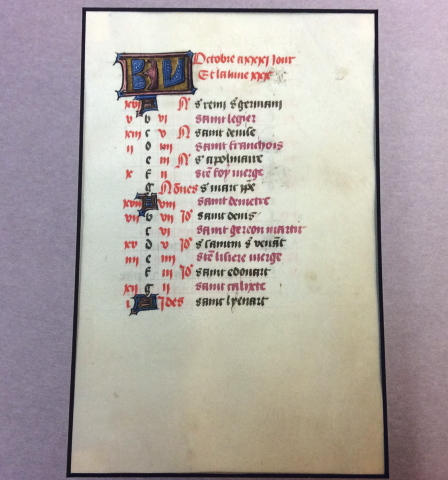 KL Octobre a xxxi jour
Et la lune xxx
xvi A N s remi s germain
v b vi saint legier
xiii c v N saint denise
ii d iiii saint franchois
e iii N s apolinaire
x f ii ste foy vierge
g Nones s marc
xviii A viii saint demetre
vii b vii Id saint denis
c vi saint gereon martir
xv d v Id s venant
iiii e iiii vierge
f iii Id saint edouart
xii g ii saint calixte
i A Ides saint lyenart